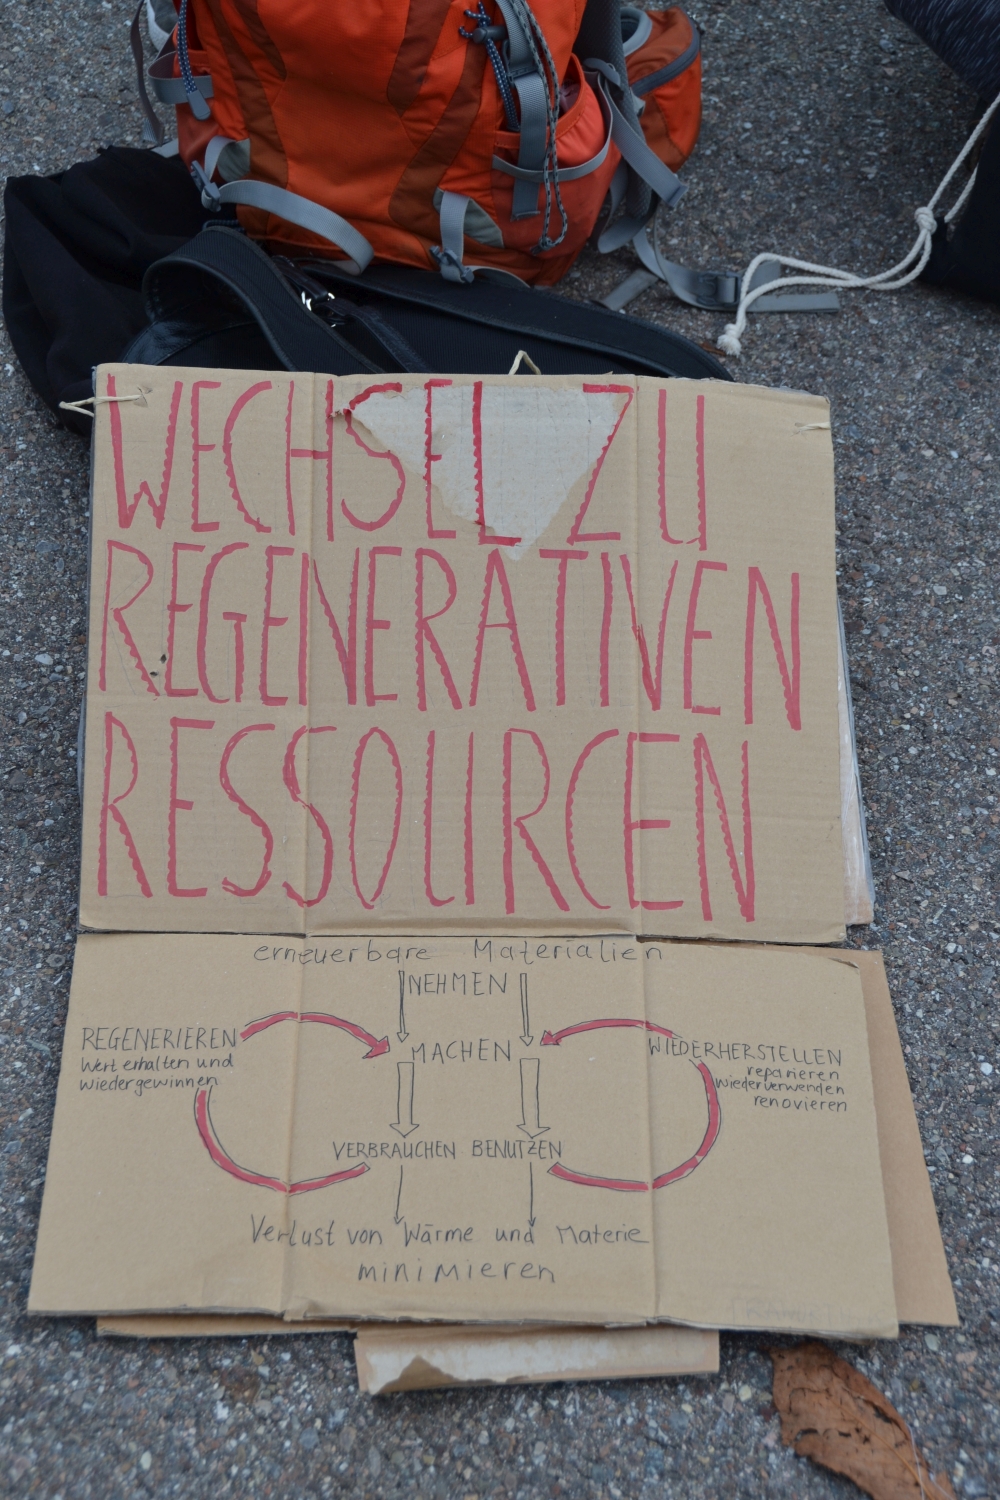 WECHSEL ZU
REGENERATIVEN
RESSOURCEN
erneuerbare Materialien
NEHMEN
MACHEN
REGENERIEREN
Wert erhalten und
wiedergewinnen
WIEDERHERSTELLEN
reparieren
wiederverwenden
renovieren
VERBRAUCHEN BENUTZEN
Verlust von Wärme und Materie
minimieren